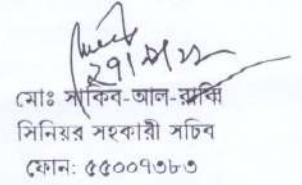 মোঃ সাকিব-আল-রাব্বি
সিনিয়র সহকারী সচিব
ফোন: ৫৫০০৭৩৮৩